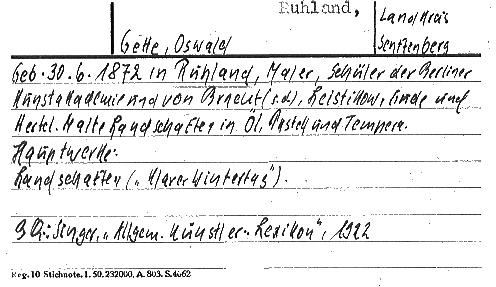 Ruhland,
Landkreis
Senftenberg
Gette, Oswald
Geb. 30. 6. 1872 in Ruhland, Maler, Schüler der Berliner
Kunstakademie und von Bracht (s.d.), Leistikow, Linde und
Hertel. Malte Landschaften in Öl, Pastell und Tempera.
Hauptwerke:
Landschaften („Klarer Wintertag").
Singer, „Allgem. Künstler-Lexikon", 1922
Reg. 10 Stichnote. I. 50. 232000. A. 803. S. 4062